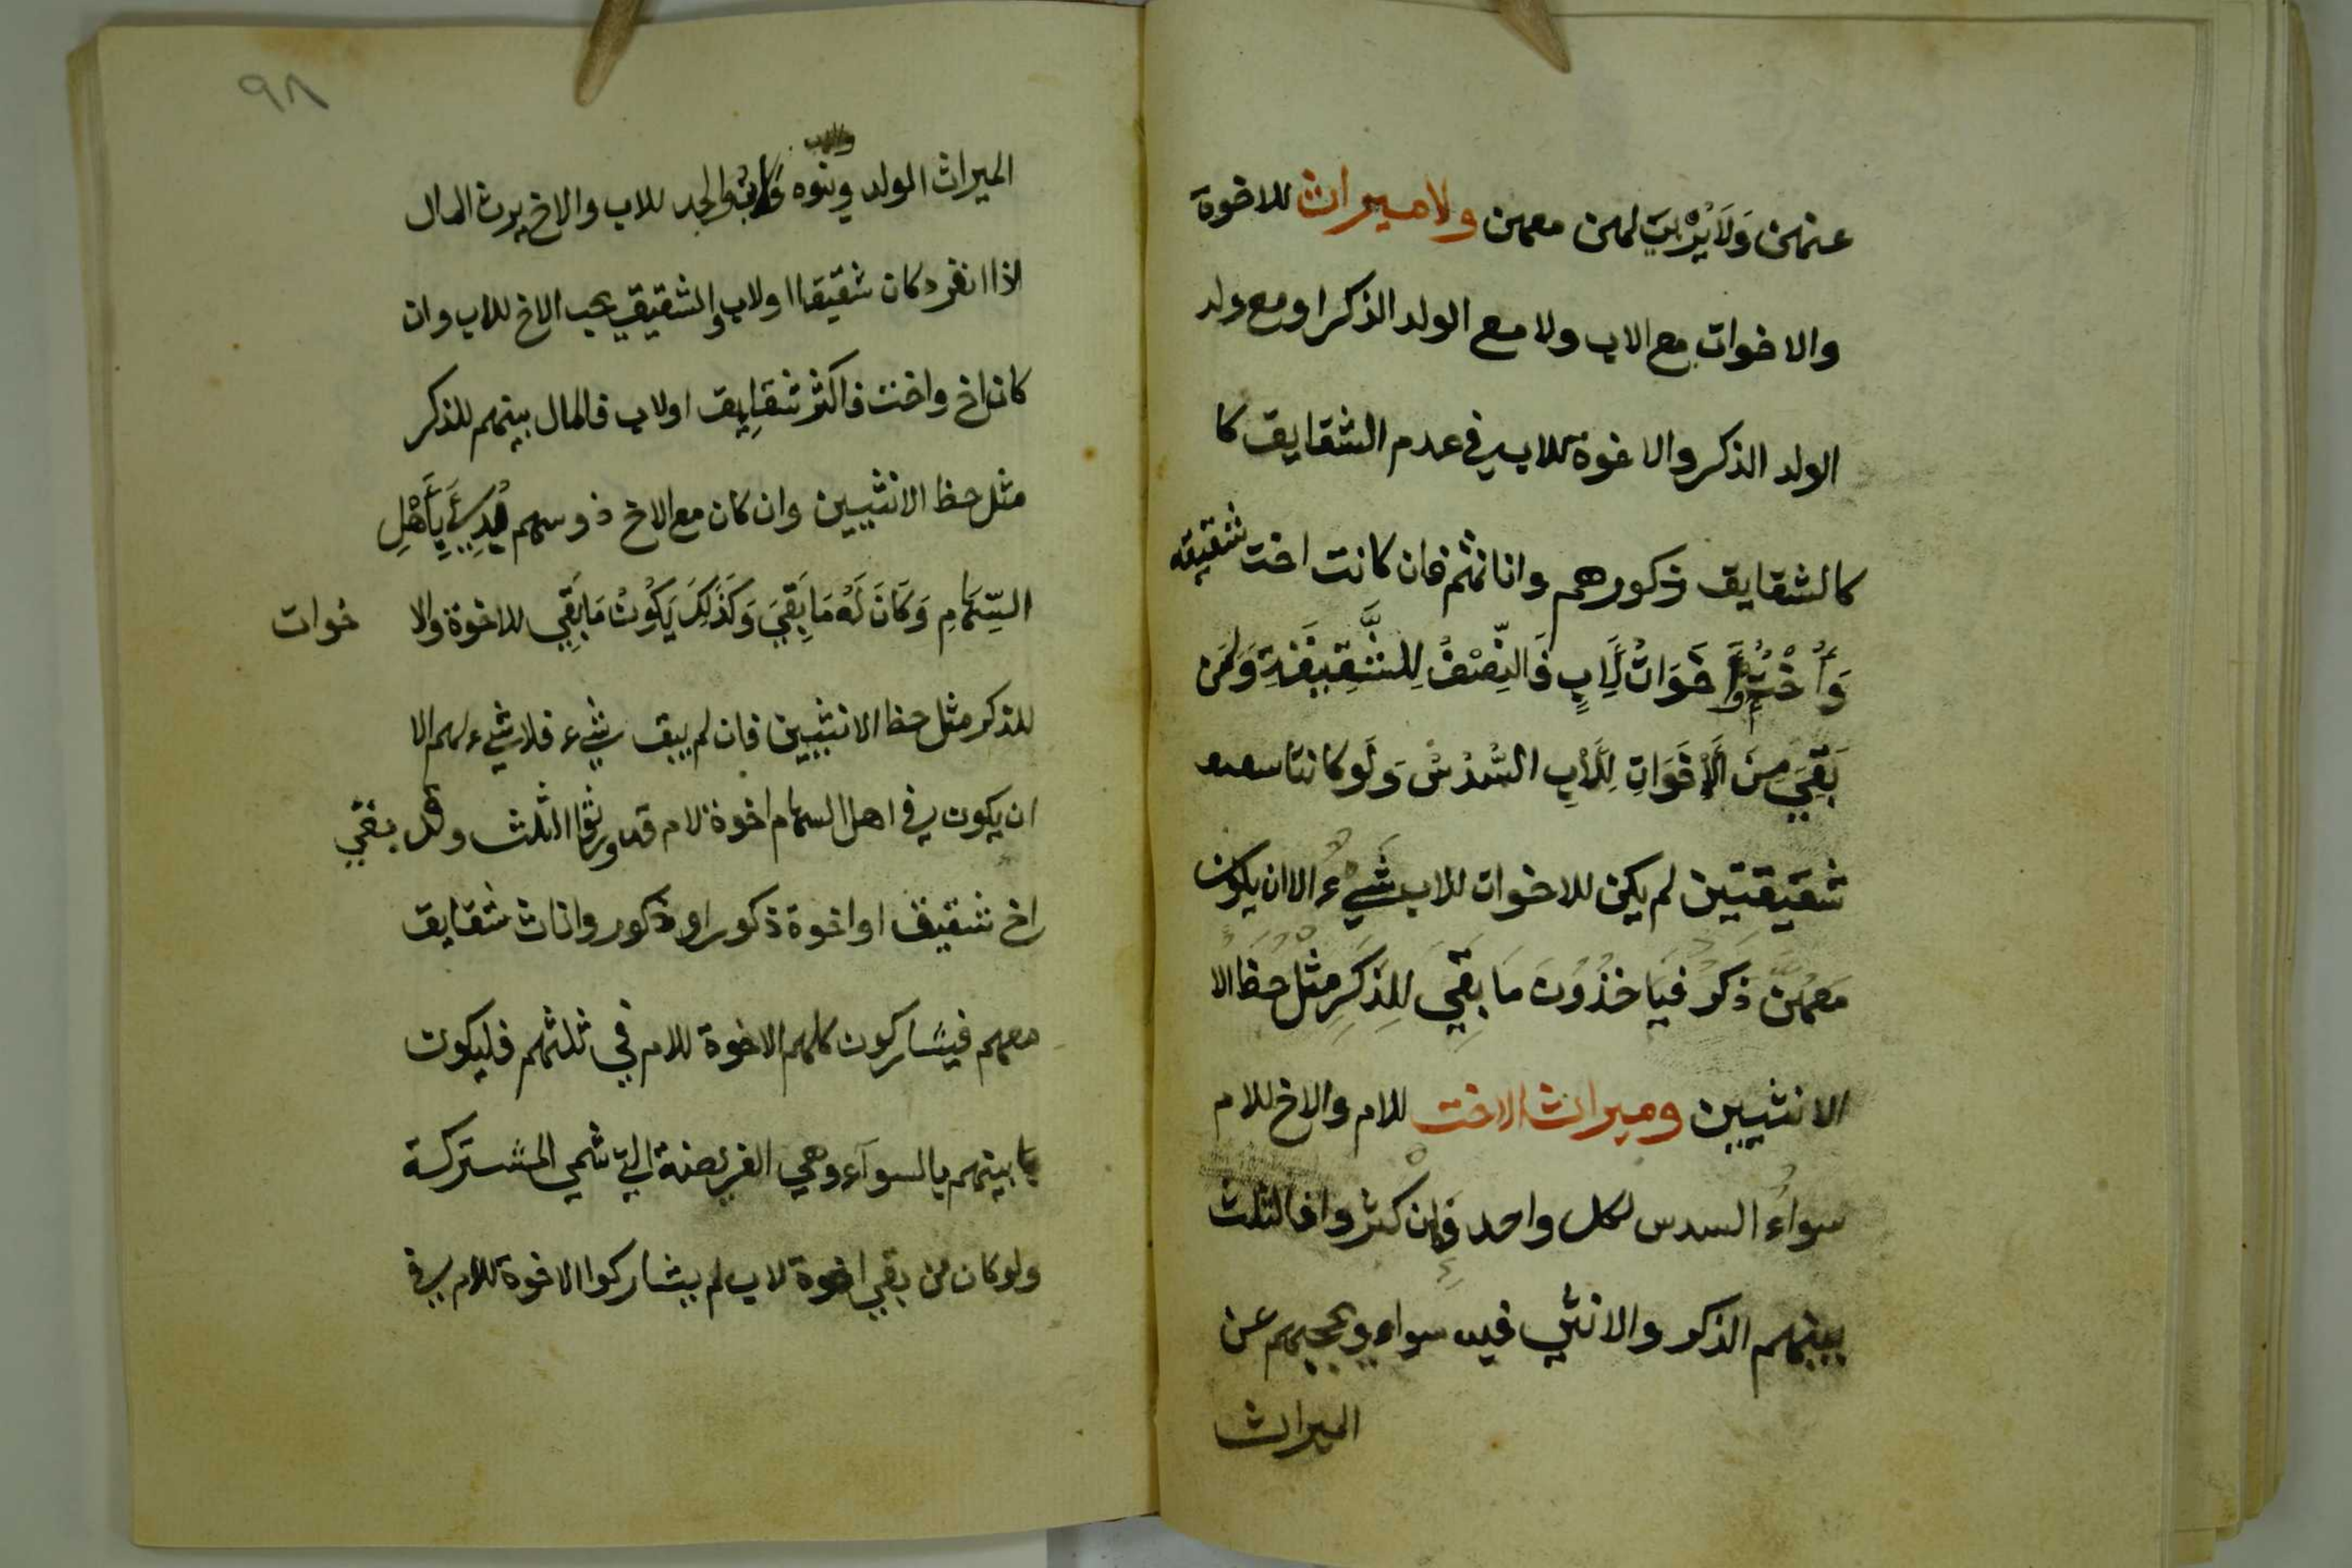 عنهن ولا يُرْبَيْنَ لهن معهن ولا ميراث للاخوة
والاخوات مع الاب ولا مع الولد الذكر او مع ولد
الولد الذكر والاخوة للاب في عدم الشقايق كا
كالشقايق ذكورهم واناثهم فان كانت اخت شقيقه
وَأُخْتٌ أَوْ أَخَوَاتٌ لِأَبٍ فَالنِّصْفُ لِلشَّقِيقَةِ وَلِمَنْ
بَقِيَ مِنَ الْأَخَوَاتِ لِلْأَبِ السُّدُسُ وَلَو كانتا
شقيقتين لم يكن للاخوات للاب شَيْءٌ الا ان يكون
مَعَهُنَّ ذَكَرٌ فَيَاخُذُونَ مَا بَقِيَ لِلذَّكَرِ مِثْلُ حَظِّ الا
الانثيين وميراث الاخت للام والاخ للام
سواءٌ السدس لكل واحد وَإِن كثروا فالثلث
بينهم الذكر والانثى فيه سواء ويحجبهم عن
الميراث
٩٨
والاب
الميراث الولد وبنوه والجد للاب والاخ يرث المال
اذا انفرد كان شقيقا او لاب والشقيق يحجب الاخ للاب وان
كان اخ واخت فاكثر شقايق او لاب فالمال بينهم للذكر
مثل حظ الانثيين وان كان مع الاخ ذو سهم بُدِئَ بِأَهْلِ
السِّهَامِ وَكَانَ لَهُ مَا بَقِيَ وَكَذَلِكَ يَكُونُ مَا بَقِيَ للاخوة والا خوات
للذكر مثل حظ الانثيين فان لم يبق شيء فلا شيء لهم الا
ان يكون في اهل السهام اخوة لام قد ورثوا الثلث وقد بقي
اخ شقيق او اخوة ذكور او ذكور واناث شقايق
معهم فيشاركون كلهم الاخوة للام في ثلثهم فليكون
بينهم بالسوآء وهي الفريضة التي تسمي المشتركة
ولو كان من بقي اخوة لاب لم يشاركوا الاخوة للام في